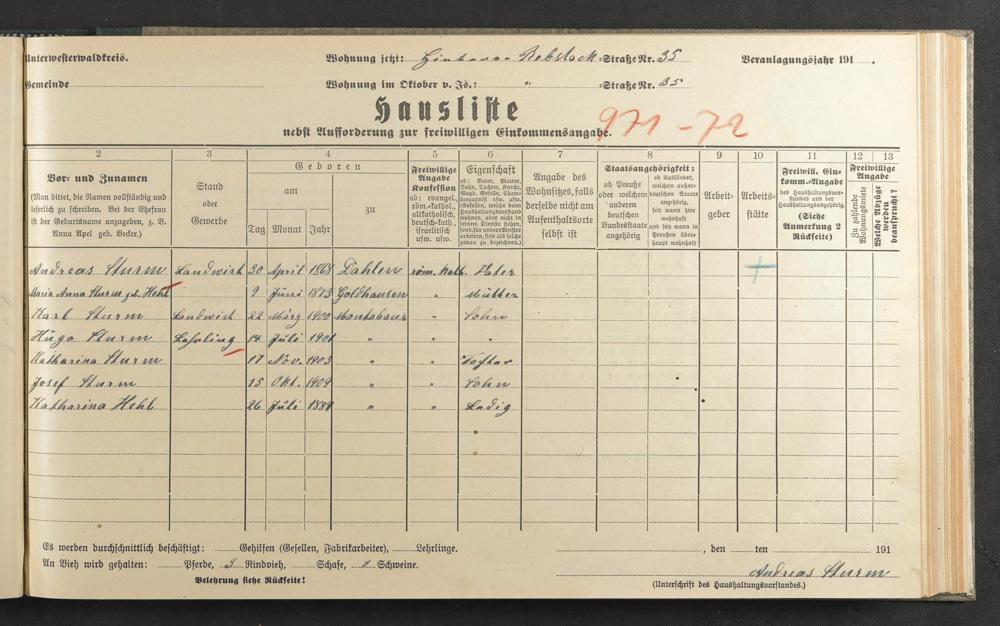 Unterwesterwaldkreis. Wohnung jetzt: Hinterer Rebstock-Straße Nr. 35 Veranlagungsjahr 191 .
Gemeinde Wohnung im Oktober v. Js.: " -Straße Nr. 35
Hausliste
nebst Aufforderung zur freiwilligen Einkommensangabe.
971-72
2 3 4 5 6 7 8 9 10 11 12 13
Vor- und Zunamen
(Man bittet, die Namen vollständig und
leserlich zu schreiben. Bei der Ehefrau
ist der Geburtsname anzugeben, z. B.
Anna Apel geb. Becker.)
Stand
oder
Gewerbe
Geboren
am
zu
Tag Monat Jahr
Freiwillige
Angabe
Konfession
ob: evangel.,
röm.-kathol.,
altkatholisch,
deutsch-kath.,
israelitisch
usw. usw.
Eigenschaft
ob: Vater, Mutter,
Sohn, Tochter, Knecht,
Magd, Geselle, Cham-
bregarnist usw. usw.
Gesellen, welche beim
Haushaltungsvorstand
wohnen, aber nicht in
seinem Dienste stehen,
sondern für andere Meister
arbeiten, sind als solche
genau zu bezeichnen.)
Angabe des
Wohnsitzes, falls
derselbe nicht am
Aufenthaltsorte
selbst ist
Staatsangehörigkeit:
ob Preuße
oder welchem
anderen
deutschen
Bundesstaate
angehörig
ob Ausländer,
welchem außer-
deutschen Staate
angehörig,
seit wann hier
wohnhaft
und seit wann in
Preußen über-
haupt wohnhaft
Arbeit-
geber
Arbeits-
stätte
Freiwill. Ein-
komm.-Angabe
des Haushaltungsvor-
standes und der
Haushaltungsangehörig.
(Siehe
Anmerkung 2
Rückseite)
Freiwillige
Angabe
Zu zahlende
Wohnungsmiete
Welche Abzüge
werden
beansprucht?
Andreas Sturm Landwirt 30 April 1868 Dahlen röm. kath. Vater
Maria Anna Sturm geb. Hehl 9 Juni 1873 Goldhausen " Mutter
Karl Sturm Landwirt 22 März 1900 Montabaur " Sohn
Hugo Sturm Lehrling 14 Juli 1901 " " "
Katharina Sturm 17 Nov. 1903 " " Tochter
Josef Sturm 15 Okt. 1909 " " Sohn
Katharina Hehl 26 Juli 1889 " " Ledig
Es werden durchschnittlich beschäftigt: Gehilfen (Gesellen, Fabrikarbeiter), Lehrlinge.
, den ten 191
An Vieh wird gehalten: Pferde, 3 Rindvieh, Schafe, 1 Schweine.
Andreas Sturm
Belehrung siehe Rückseite!
(Unterschrift des Haushaltungsvorstandes.)